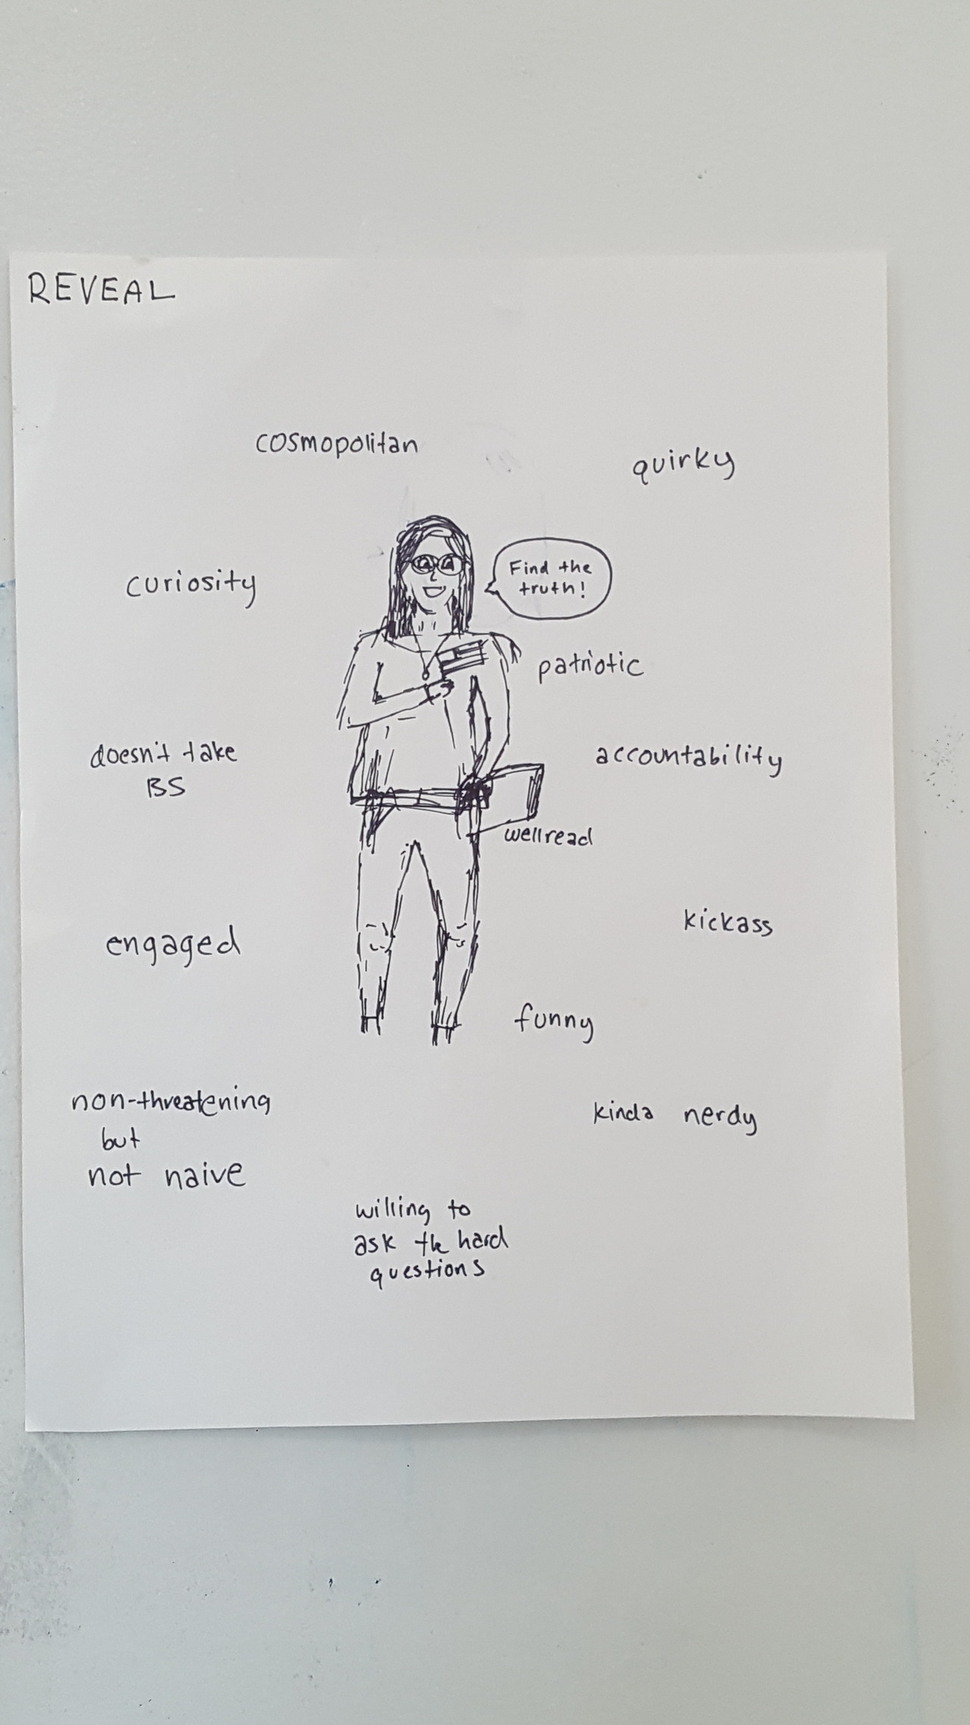 REVEAL
cosmopolitan
quirky
curiosity
Find the
truth!
patriotic
doesn't take
BS
accountability
wellread
engaged
kickass
funny
non-threatening
but
not naive
kinda nerdy
willing to
ask the hard
questions